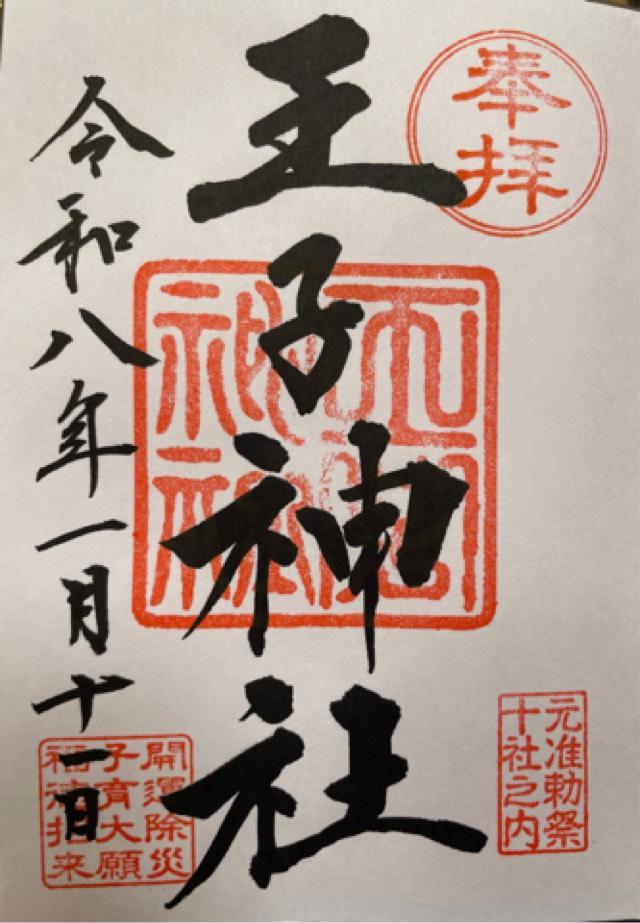 奉拝
王子神社
令和八年一月十一日
元准勅祭
十社之内
開運除災
子育大願
福徳招来